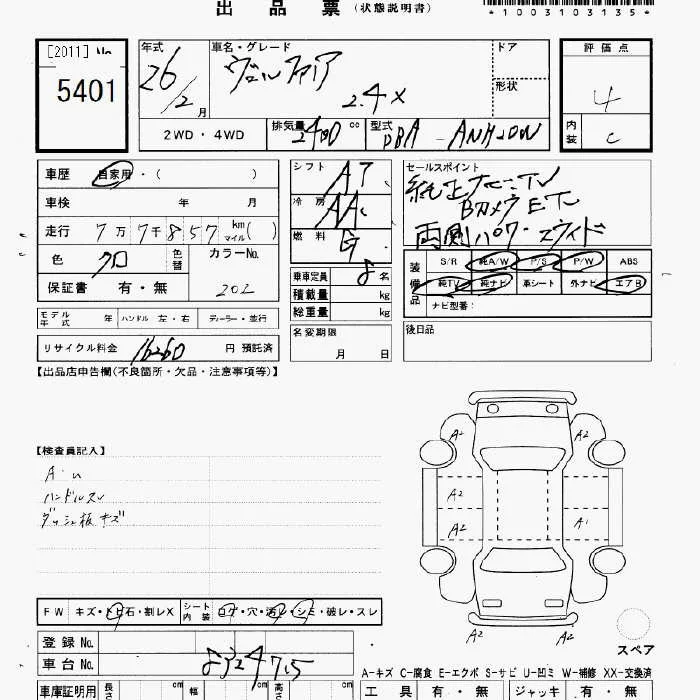 出品票 (状態説明書)
*1003103135*
[2011] No
5401
年式 車名・グレード ドア 評価点
26/2月 ヴェルファイア 2.4X 形状 4
2WD・4WD 排気量 2400 cc 型式 DBA-ANH20W 内装 C
車歴 自家用・( )
車検 年 月
走行 7万7千857 km マイル( )
色 クロ 色替 カラーNo. 202
保証書 有・無
シフト AT
冷房 AAC
燃料 G
乗車定員 8名
積載量 kg
総重量 kg
セールスポイント
純正ナビ・TV
Bカメラ ETC
両側パワースライド
装備品 S/R 純A/W P/S P/W ABS
純TV 純ナビ 革シート 外ナビ エアB
ナビ型番:
モデル年式 年 ハンドル 左・右 ディーラー・並行
名変期限 月 日
後日品
リサイクル料金 16260 円 預託済
【出品店申告欄(不良箇所・欠品・注意事項等)】
【検査員記入】
A・U
ハンドルスレ
ダッシュ板キズ
A2 A2
A2
A2 A1
A2 A2
スペア
FW キズ・トビ石・割レX シート内装 コゲ・穴・汚レ・シミ・破レ・スレ
登録 No.
車台 No. 8324715
A-キズ C-腐食 E-エクボ S-サビ U-凹ミ W-補修 XX-交換済
車庫証明用 長さ cm 幅 cm 高さ cm
工具 有・無 ジャッキ 有・無